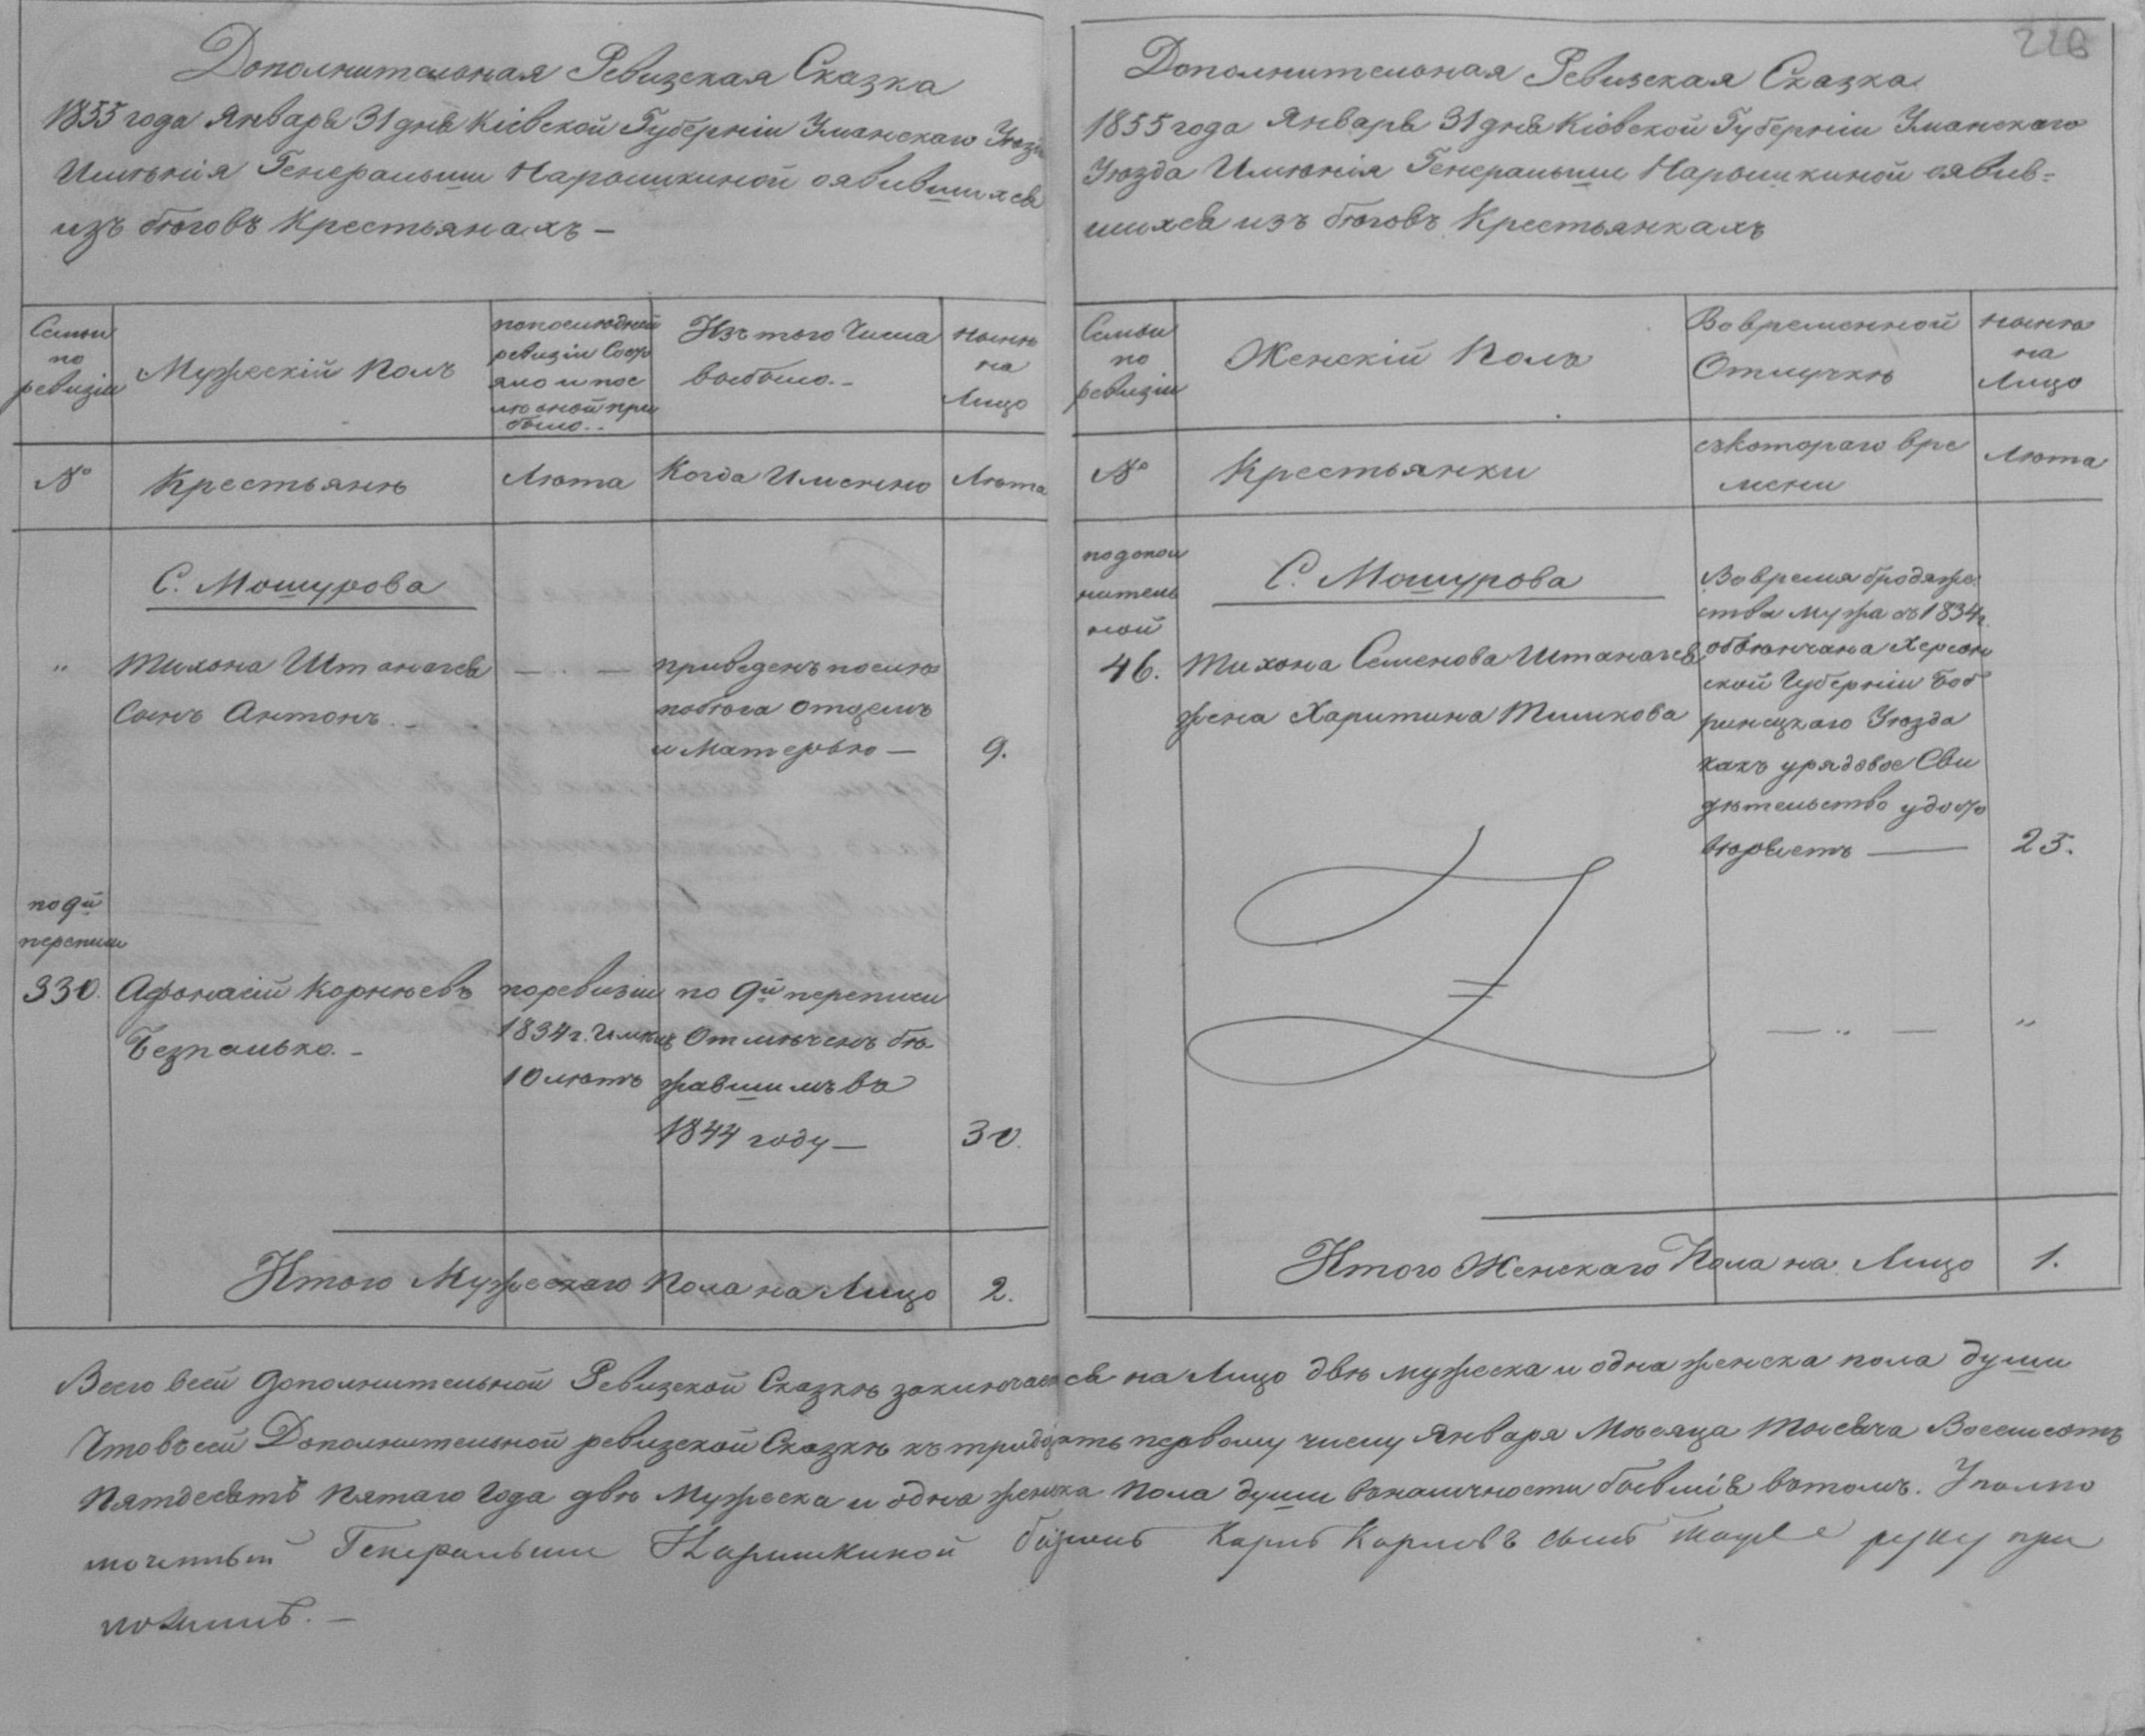 Дополнительная Ревизская Сказка
1855 года Января 31 дня Кіевской Губерніи Уманскаго Уѣзда
Имѣнія Генеральши Нарышкиной оявившихся
изъ бѣговъ Крестьянахъ —
Семьи
по
ревизіи
Мужескій Полъ
по послѣдней
ревизіи Состо
яло и пос
лѣ оной при
было..
Изъ того Числа
выбыло. -
Нынѣ
на
Лицо
№
Крестьянѣ
Лѣта
Когда Именно
Лѣта
С. Мошурова
"
Тихона Штаначева
Сынъ Антонъ. -
— .. —
приведенъ послѣ
побѣга Отцемъ
и Матерью —
9.
по 9й
переписи
330.
Афанасій Корнѣевъ
Безпалько. -
по ревизіи
1834 г. Имѣлъ
10 лѣтъ
по 9й переписи
Отмѣченъ бѣ
жавшимъ въ
1844 году —
30.
Итого Мужескаго Пола на Лицо
2.
226
Дополнительная Ревизская Сказка
1855 года Января 31 дня Кіевской Губерніи Уманскаго
Уѣзда Имѣнія Генеральши Нарышкиной оявив=
шихся изъ бѣговъ Крестьянкахъ
Семьи
по
ревизіи
Женскій Полъ
Во временной
Отлучкѣ
Нынѣ
на
Лицо
№
Крестьянки
съ котораго вре
мени
Лѣта
по допол
нитель
ной
46.
С. Мошурова
Тихона Семенова Штаначева
жена Харитина Тишкова
Во время бродяже
ства мужа въ 1834 г.
обвѣнчана Херсон
ской Губерніи Боб
ринецкаго Уѣзда
какъ урядовое Сви
дѣтельство удосто
вѣряетъ —
25.
— .. —
"
Итого Женскаго Пола на Лицо
1.
Всего всей Дополнительной Ревизской Сказкѣ заключается на Лицо двѣ мужеска и одна женска пола души
Что въ сей Дополнительной ревизской Сказкѣ къ тридцать первому числу Января Мѣсяца Тысяча Восемсотъ
Пятдесятъ Пятаго Года двѣ Мужеска и одна женска Пола души въ наличности бывшія въ томъ. Уполно
моченный Генеральши Нарышкиной Карлъ Карловъ сынъ руку при
ложилъ. —